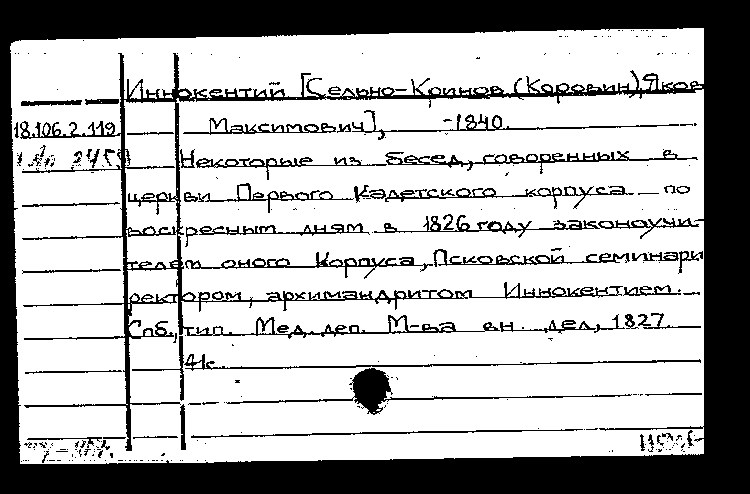 Иннокентий [Сельно-Кринов (Коровин), Яков
18.106.2.119 Максимович], -1840.
Некоторые из бесед, говоренных в
церкви Первого Кадетского корпуса по
воскресным дням в 1826 году законоучи-
телем оного Корпуса, Псковской семинари
ректором, архимандритом Иннокентием.
Спб., тип. Мед. деп. М-ва вн. дел, 1827.
41с.